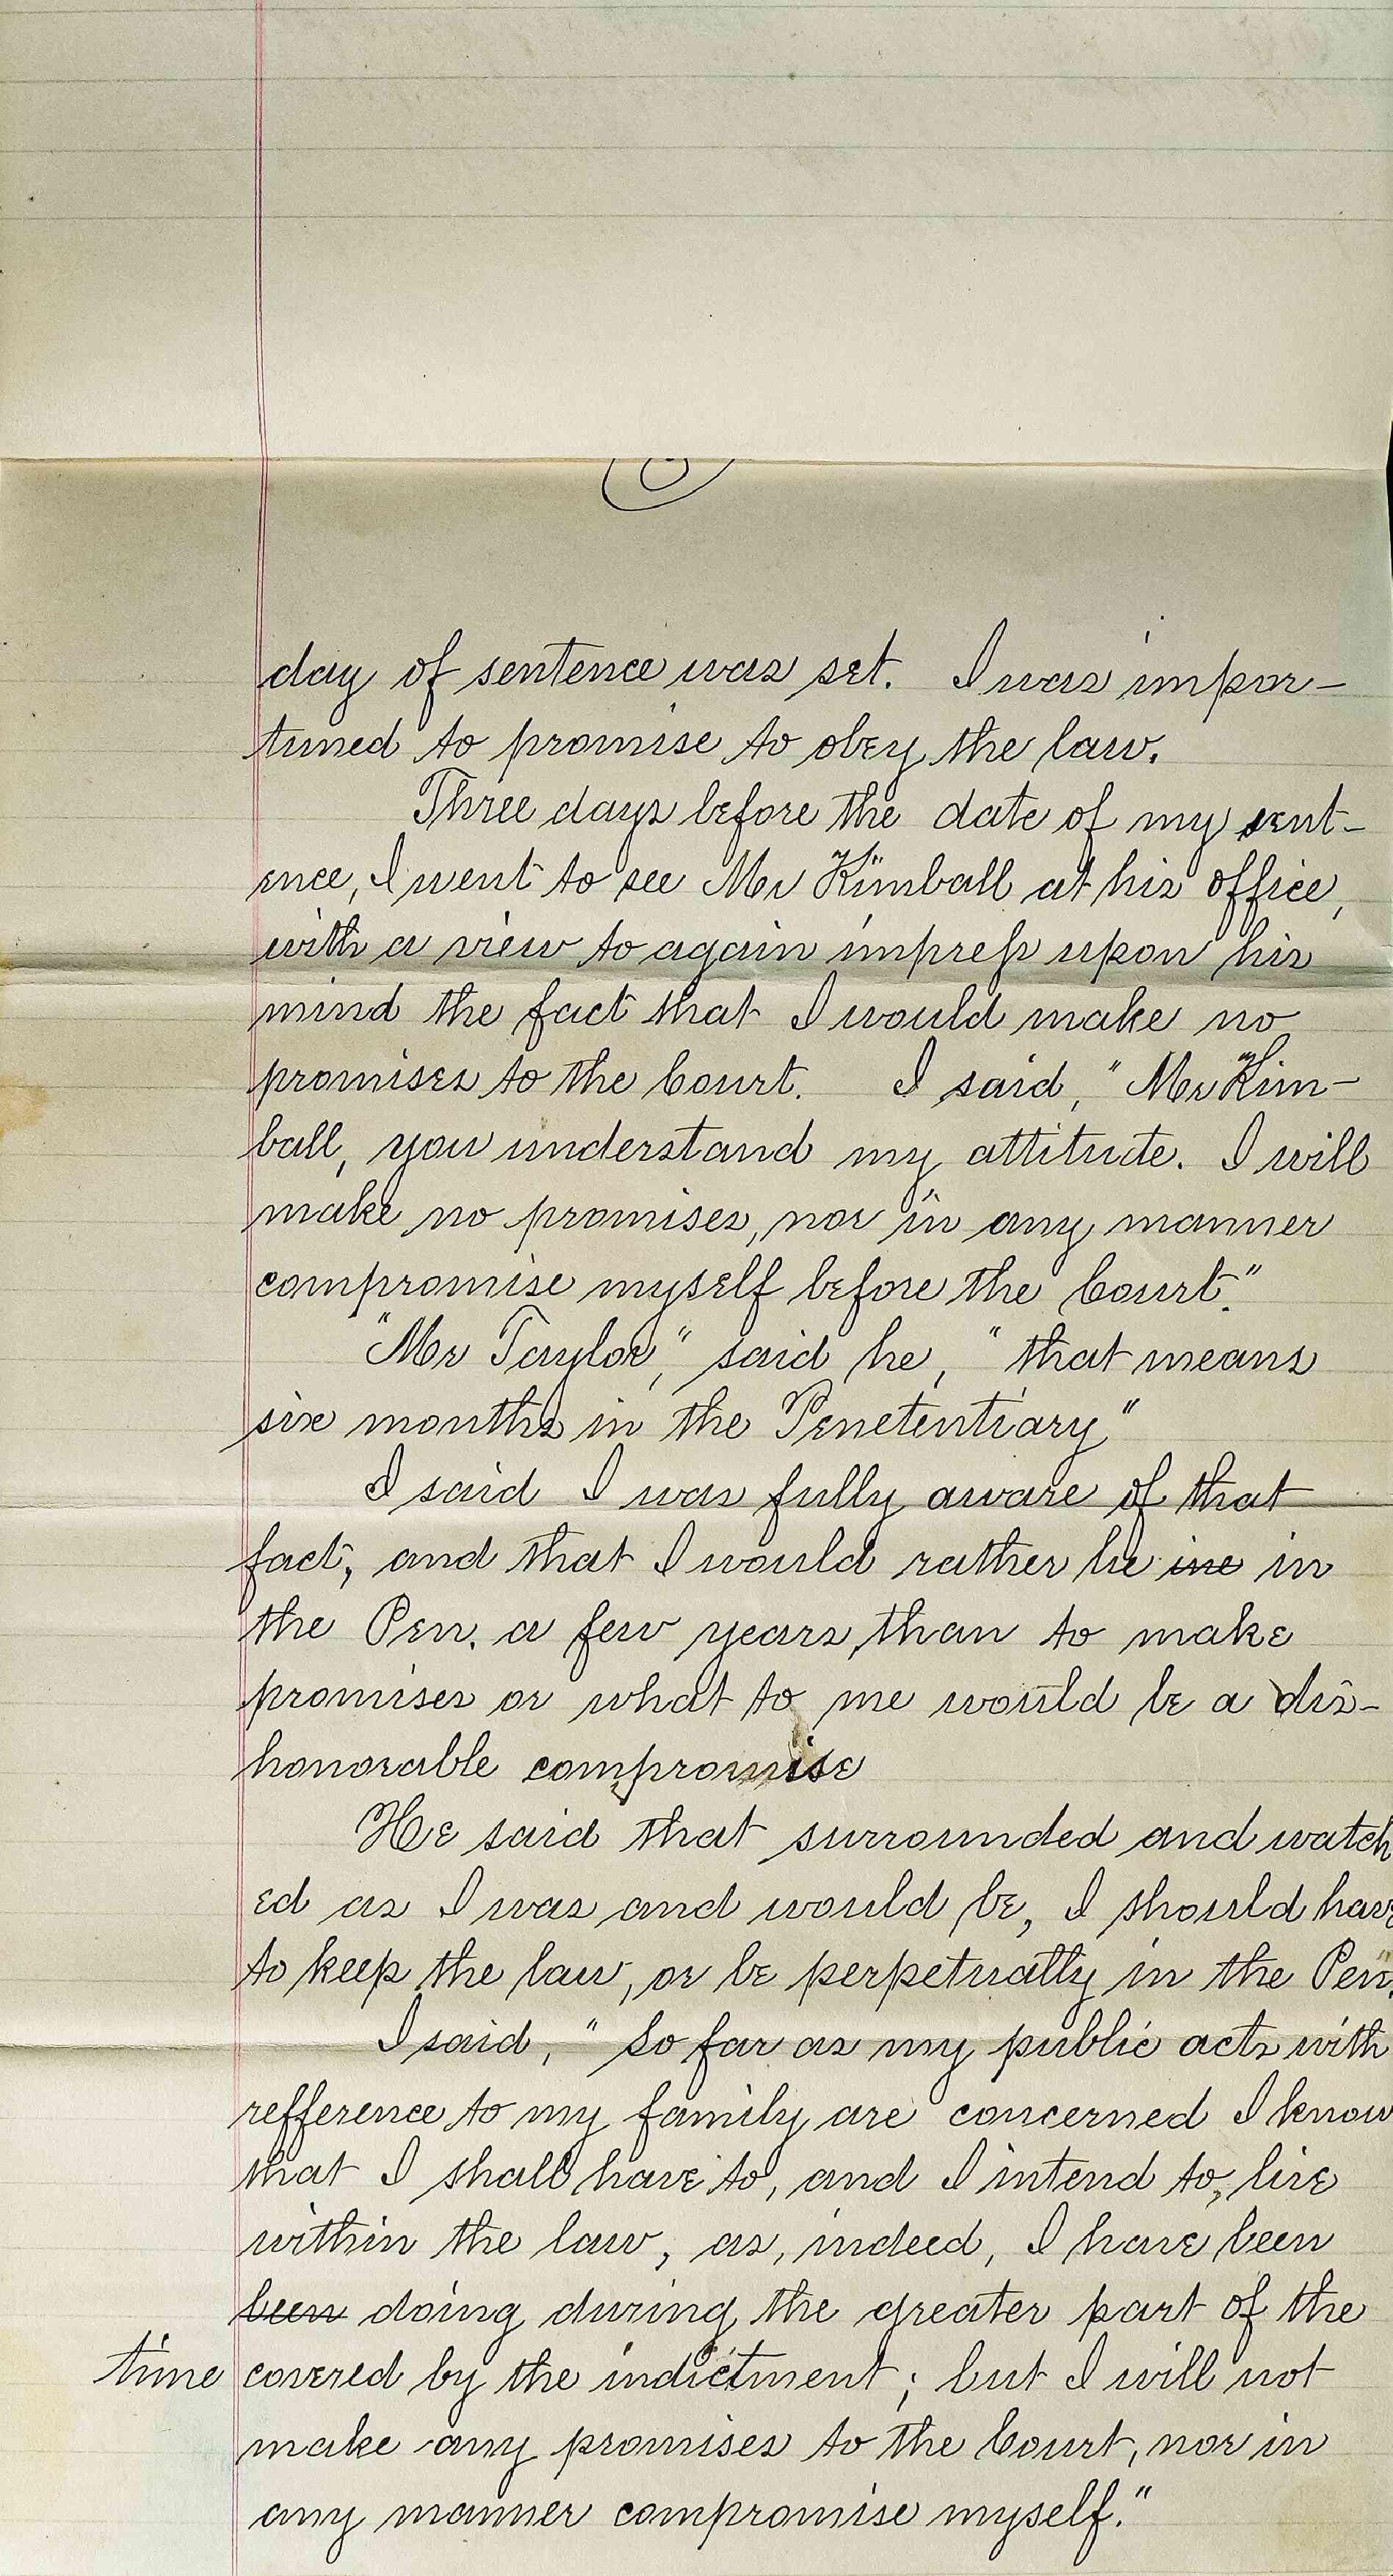 day of sentence was set. I was impor-
tuned to promise to obey the law.
Three days before the date of my sent-
ence, I went to see Mr Kimball at his office,
with a view to again impress upon his
mind the fact that I would make no
promises to the Court. I said, "Mr Kim-
ball, you understand my attitude. I will
make no promises, nor in any manner
compromise myself before the Court."
"Mr Taylor," said he, "that means
six months in the Penetentiary"
I said I was fully aware of that
fact, and that I would rather lie ine in
the Pen. a few years, than to make
promises or what to me would be a dis-
honorable compromise
He said that surrounded and watch
ed as I was and would be, I should have
to keep the law, or be perpetually in the Pen.
I said, "So far as my public acts with
refference to my family are concerned I know
that I shall have to, and I intend to, live
within the law, as, indeed, I have been
been doing during the greater part of the
time covered by the indictment; but I will not
make any promises to the Court, nor in
any manner compromise myself."